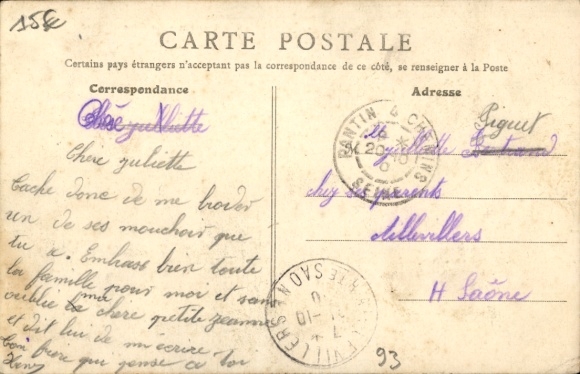 15c
CARTE POSTALE
Certains pays étrangers n'acceptant pas la correspondance de ce côté, se renseigner à la Poste
Correspondance
Chère Juliette
Chere juliette
Tache donc de me broder
un de ses mouchoir que
tu a. Embrasse bien toute
la famille pour moi et sans
oublier ma chere petite jeanne
et dit lui de m'écrire
Ton frere qui pense a toi
Henry
Adresse
Piguet
Melle Juliette Bertrand
chez ses parents
Aillevillers
H Saône
PANTIN 4 CHEMINS
SEINE
AILLEVILLERS HTE SAONE
93